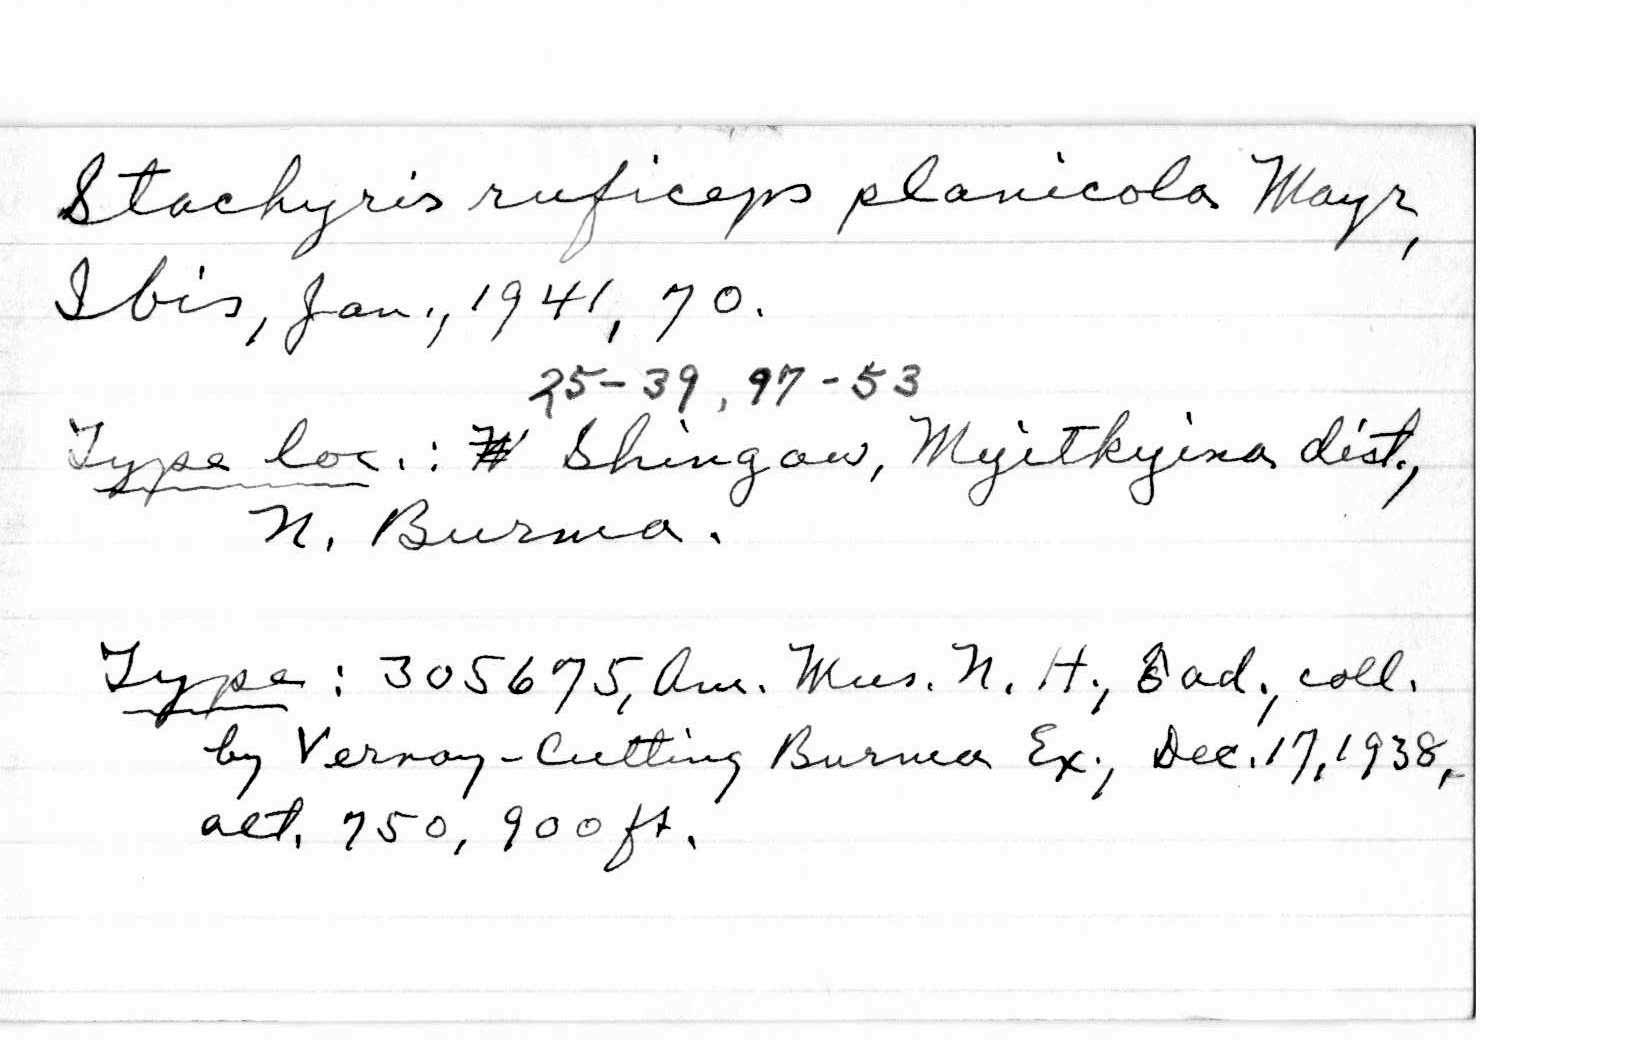 Stachyris ruficeps planicola Mayr,
Ibis, Jan., 1941, 70.
25-39, 97-53
Type loc.: Shingaw, Myitkyina dist.,
N. Burma.
Type: 305675, Am. Mus. N. H., ad., coll.
by Vernay-Cutting Burma Ex., Dec. 17, 1938,
alt. 750, 900 ft.